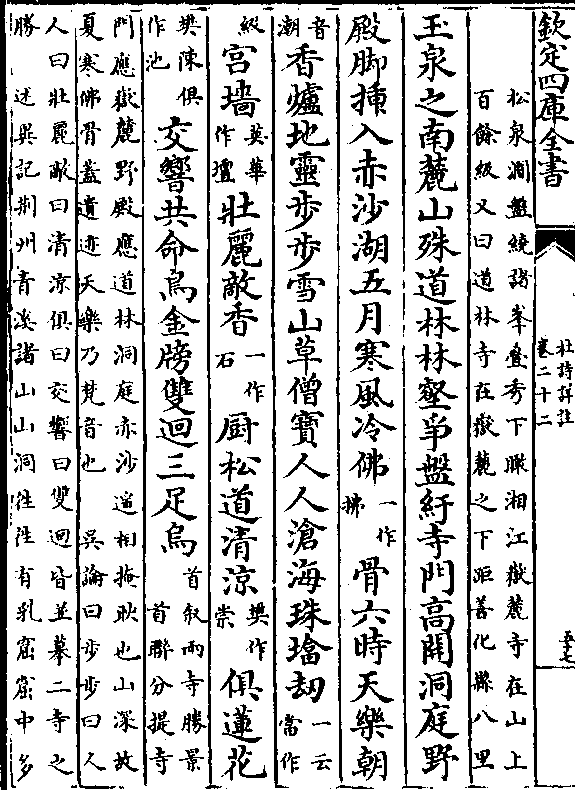 欽定四庫全書
杜詩詳註
卷二十二
五十七
松泉澗盤繞諸峯疊秀下瞰湘江嶽麓寺在山上
百餘級又曰道林寺在嶽麓之下距善化縣八里
玉泉之南麓山殊道林林壑爭盤紆寺門高開洞庭野
殿脚揷入赤沙湖五月寒風冷佛一作拂骨六時天樂朝
音潮香爐地靈步步雪山草僧寶人人滄海珠墖刼一云當作
級宫墻英華作壇壯麗敵香一作石厨松道清涼樊作崇俱蓮花
樊陳俱作池交響共命鳥金牓雙迴三足烏首叙兩寺勝景首聯分提寺
門應嶽麓野殿應道林洞庭赤沙遥相掩映也山深故
夏寒佛骨蓋遺迹天樂乃梵音也 吳論曰步步曰人
人曰壯麗敵曰清涼俱曰交響曰雙迴皆並摹二寺之
勝 述異記荆州青溪諸山山洞徃徃有乳窟窟中多